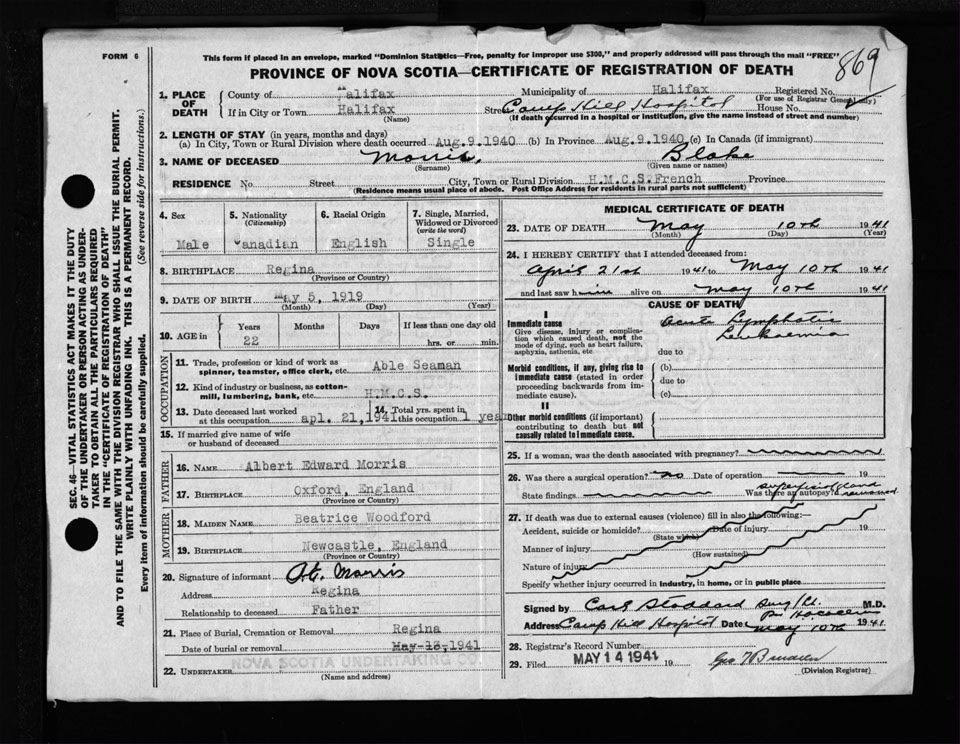 FORM 6
This form if placed in an envelope, marked "Dominion Statistics—Free, penalty for improper use $300," and properly addressed will pass through the mail "FREE"
PROVINCE OF NOVA SCOTIA—CERTIFICATE OF REGISTRATION OF DEATH
869
SEC. 46—VITAL STATISTICS ACT MAKES IT THE DUTY
OF THE UNDERTAKER OR PERSON ACTING AS UNDER-
TAKER TO OBTAIN ALL THE PARTICULARS REQUIRED
IN THE "CERTIFICATE OF REGISTRATION OF DEATH"
AND TO FILE THE SAME WITH THE DIVISION REGISTRAR WHO SHALL ISSUE THE BURIAL PERMIT.
WRITE PLAINLY WITH UNFADING INK. THIS IS A PERMANENT RECORD.
Every item of information should be carefully supplied. (See reverse side for instructions.)
1. PLACE OF DEATH
County of Halifax Municipality of Halifax Registered No.
(For use of Registrar General only)
If in City or Town Halifax Street Camp Hill Hospital House No.
(Name) (If death occurred in a hospital or institution, give the name instead of street and number)
2. LENGTH OF STAY (in years, months and days)
(a) In City, Town or Rural Division where death occurred Aug.9.1940 (b) In Province Aug.9.1940 (c) In Canada (if immigrant)
3. NAME OF DECEASED Morris, Blake
(Surname) (Given name or names)
RESIDENCE No. Street City, Town or Rural Division H.M.C.S.French Province
(Residence means usual place of abode. Post Office Address for residents in rural parts not sufficient)
4. Sex Male
5. Nationality (Citizenship) Canadian
6. Racial Origin English
7. Single, Married, Widowed or Divorced (write the word) Single
8. BIRTHPLACE Regina
(Province or Country)
9. DATE OF BIRTH May 5, 1919
(Month) (Day) (Year)
10. AGE in Years 22 Months Days If less than one day old hrs. or min.
OCCUPATION
11. Trade, profession or kind of work as spinner, teamster, office clerk, etc. Able Seaman
12. Kind of industry or business, as cotton-mill, lumbering, bank, etc. H.M.C.S.
13. Date deceased last worked at this occupation apl. 21,1941
14. Total yrs. spent in this occupation 1 year
15. If married give name of wife or husband of deceased
FATHER
16. NAME Albert Edward Morris
17. BIRTHPLACE Oxford, England
(Province or Country)
MOTHER
18. MAIDEN NAME Beatrice Woodford
19. BIRTHPLACE Newcastle, England
(Province or Country)
20. Signature of informant A.E. Morris
Address Regina
Relationship to deceased Father
21. Place of Burial, Cremation or Removal Regina
Date of burial or removal May 13,1941
22. UNDERTAKER NOVA SCOTIA UNDERTAKING CO.
(Name and address)
MEDICAL CERTIFICATE OF DEATH
23. DATE OF DEATH May 10th 1941
(Month) (Day) (Year)
24. I HEREBY CERTIFY that I attended deceased from:
April 21st 1941 to May 10th 1941
and last saw him alive on May 10th 1941
CAUSE OF DEATH
I
Immediate cause
Give disease, injury or complication which caused death, not the mode of dying, such as heart failure, asphyxia, asthenia, etc
Acute Lymphatic
Leukaemia
due to
Morbid conditions, if any, giving rise to immediate cause (stated in order proceeding backwards from immediate cause).
(b)
due to
(c)
II
Other morbid conditions (if important) contributing to death but not causally related to immediate cause.
25. If a woman, was the death associated with pregnancy?
26. Was there a surgical operation? no Date of operation 19
State findings Was there an autopsy?
27. If death was due to external causes (violence) fill in also the following:—
Accident, suicide or homicide? Date of injury 19
(State which)
Manner of injury
(How sustained)
Nature of injury
Specify whether injury occurred in industry, in home, or in public place
Signed by Carl Stoddard Surg/Lt. M.D.
Address Camp Hill Hospital Date May 10th 1941
28. Registrar's Record Number
29. Filed MAY 14 1941 19
(Division Registrar)